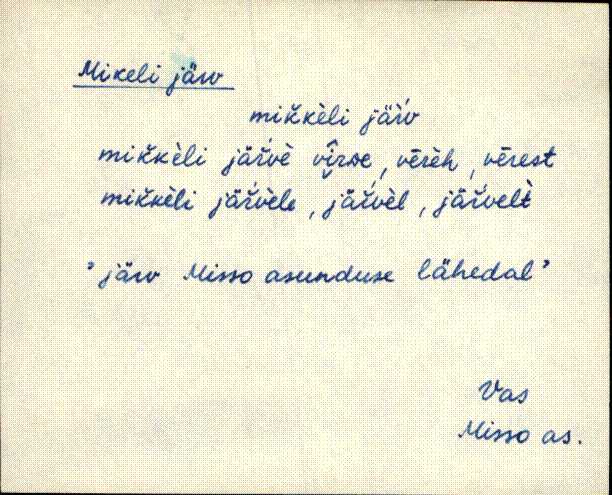 Mikeli järv
mik̆kèli jär̆v́
mik̆kèli jär̆v́è vî̬rse, vērèh, vērest
mik̆kèli jär̆v́èle, jär̆v́èl, jär̆v́elt̀
"järv Misso asunduse lähedal"
Vas
Misso as.